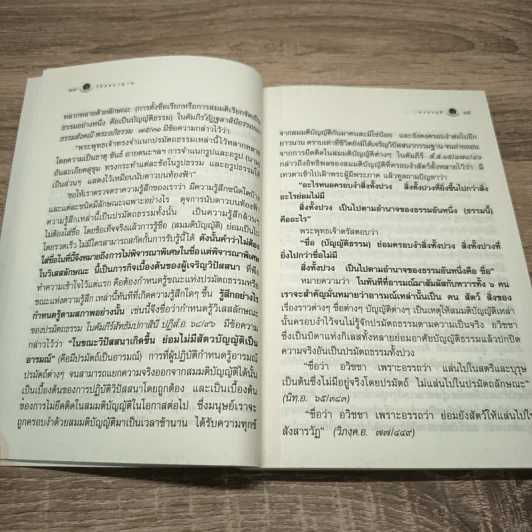 ๑๘ วิปัสสนานัย
หลากหลายด้วยลักษณะ (การตั้งชื่อเรียกหรือการสมมติเรียกจัดเป็น
ธรรมอย่างหนึ่ง คือเป็นบัญญัติธรรม) ในคัมภีร์อัฏฐสาลินีอรรถกถา
ธรรมสังคณี พระอภิธรรม ๗๕/๓๐ มีข้อความกล่าวไว้ว่า
"พระพุทธเจ้าทรงจำแนกปรมัตถธรรมเหล่านี้ไว้หลากหลาย
โดยความเป็นธาตุ ขันธ์ อายตนะฯลฯ การจำแนกรูปและอรูป (นาม)
อันละเอียดสุขุม ทรงกระทำแต่ละข้อในรูปธรรม และอรูปธรรมให้
เป็นส้วนๆ แสดงไว้เหมือนนับดาวบนท้องฟ้า"
ขอให้เราตรวจตราความรู้สึกของเราว่า มีความรู้สึกชนิดใดบ้าง
และแต่ละชนิดมีลักษณะเฉพาะอย่างไร ดุจการนับดาวบนท้องฟ้า
ความรู้สึกเหล่านี้เป็นปรมัตถธรรมทั้งนั้น เป็นความรู้สึกล้วนๆ
ไม่ต้องใส่ชื่อ โดยข้อเท็จจริงแล้วการรู้ชื่อ (สมมติบัญญัติ) ย่อมเป็นไป
โดยรวดเร็ว ไม่มีใครสามารถสกัดกั้นการรับรู้นี้ได้ ดังนั้นคำว่าไม่ต้อง
ใส่ชื่อในที่นี้จึงหมายถึงการไม่พิจารณาพิเศษในชื่อ แต่พิจารณาพิเศษ
ในวิเสสลักษณะ นี้เป็นภารกิจเบื้องต้นของผู้เจริญวิปัสสนา ที่พึง
ทำความเข้าใจไว้แต่แรก คือต้องกำหนดรู้ขณะแห่งปรมัตถธรรมหรือ
ขณะแห่งความรู้สึก เหล่านี้ทันทีที่เกิดความรู้สึกใดๆ ขึ้น รู้สึกอย่างไร
กำหนดรู้ตามสภาพอย่างนั้น เช่นนี้จึงชื่อว่ากำหนดรู้วิเสสลักษณะ
ของปรมัตถธรรม ในคัมภีร์สัทธัมปกาสินี ปฏิสํ.อ. ๖๘/๙๖ มีข้อความ
กล่าวไว้ว่า "ในขณะวิปัสสนาเกิดขึ้น ย่อมไม่มีสัตวบัญญัติเป็น
อารมณ์" (คือมีปรมัตถ์เป็นอารมณ์) การที่ผู้ปฏิบัติกำหนดรู้อารมณ์
ปรมัตถ์ต่างๆ จนสามารถแยกความจริงออกจากสมมติบัญญัติได้นั้น
เป็นเบื้องต้นของการปฏิบัติวิปัสสนาโดยถูกต้อง และเป็นเบื้องต้น
ของการไม่ยึดติดในสมมติบัญญัติในโอกาสต่อไป ซึ่งมนุษย์เราจะ
ถูกครอบงำด้วยสมมติบัญญัติมาเป็นเวลาช้านาน ได้รับความทุกข์
๑๙
จากสมมติบัญญัติกันมาคนละมิใช่น้อย และยังคงครอบงำต่อไปอีก
ยาวนาน ตราบเท่าที่ชีวิตยังมิได้เจริญวิปัสสนากรรมฐาน จนถ่ายถอน
จากการยึดติดในสมมติบัญญัติต่างๆ ในคัมภีร์ สํ.ส.
กล่าวถึงอิทธิพลของสมมติบัญญัติที่ครอบงำสัตว์เหล่านี้ว่า มี
เทวดาเข้าไปเฝ้าพระผู้มีพระภาค แล้วทูลถามปัญหาว่า
"อะไรหนอครอบงำสิ่งทั้งปวง สิ่งทั้งปวงที่ยิ่งขึ้นไปกว่าสิ่ง
อะไรย่อมไม่มี
สิ่งทั้งปวง เป็นไปตามอำนาจของธรรมอันหนึ่ง (ธรรมนี้)
คืออะไร"
พระพุทธเจ้าตรัสตอบว่า
"ชื่อ (บัญญัติธรรม) ย่อมครอบงำสิ่งทั้งปวง สิ่งทั้งปวงที่
ยิ่งไปกว่าชื่อไม่มี
สิ่งทั้งปวง เป็นไปตามอำนาจของธรรมอันหนึ่งคือ ชื่อ"
หมายความว่า ในทันทีที่อารมณ์มาสัมผัสกับทวารทั้ง ๖ คน
เราจะสำคัญมั่นหมายว่าอารมณ์เหล่านั้นเป็น คน สัตว์ สิ่งของ
เรื่องราวต่างๆ ชื่อต่างๆ บัญญัติต่างๆ เป็นเหตุให้สมมติบัญญัติเหล่า
นั้นครอบงำไว้จนไม่รู้จักปรมัตถธรรมตามความเป็นจริง อวิชชา
ซึ่งเป็นบิดาแห่งกิเลสทั้งหลายย่อมอาศัยบัญญัติธรรมแล้วปกปิด
ความจริงอันเป็นปรมัตถธรรมทั้งปวง
"ชื่อว่า อวิชชา เพราะอรรถว่า แล่นไปในสตรีและบุรุษ
เป็นต้นซึ่งไม่มีอยู่จริงโดยปรมัตถ์ ไม่แล่นไปในปรมัตถลักษณะ"
(นิทฺ.อ. ๖๕/๓๔๓)
"ชื่อว่า อวิชชา เพราะอรรถว่า ย่อมยังสัตว์ให้แล่นไปใน
สังสารวัฏ" (วิภงฺค.อ. ๗๗/๔๔๙)